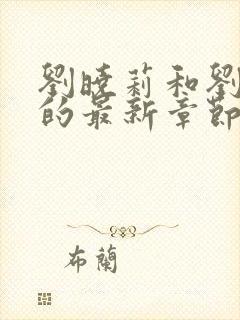 劉曉莉和劉
的最新章節
布蘭